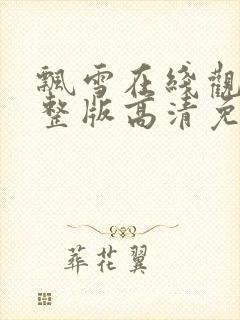 飄雪在綫觀
整版高清免
葬花翼